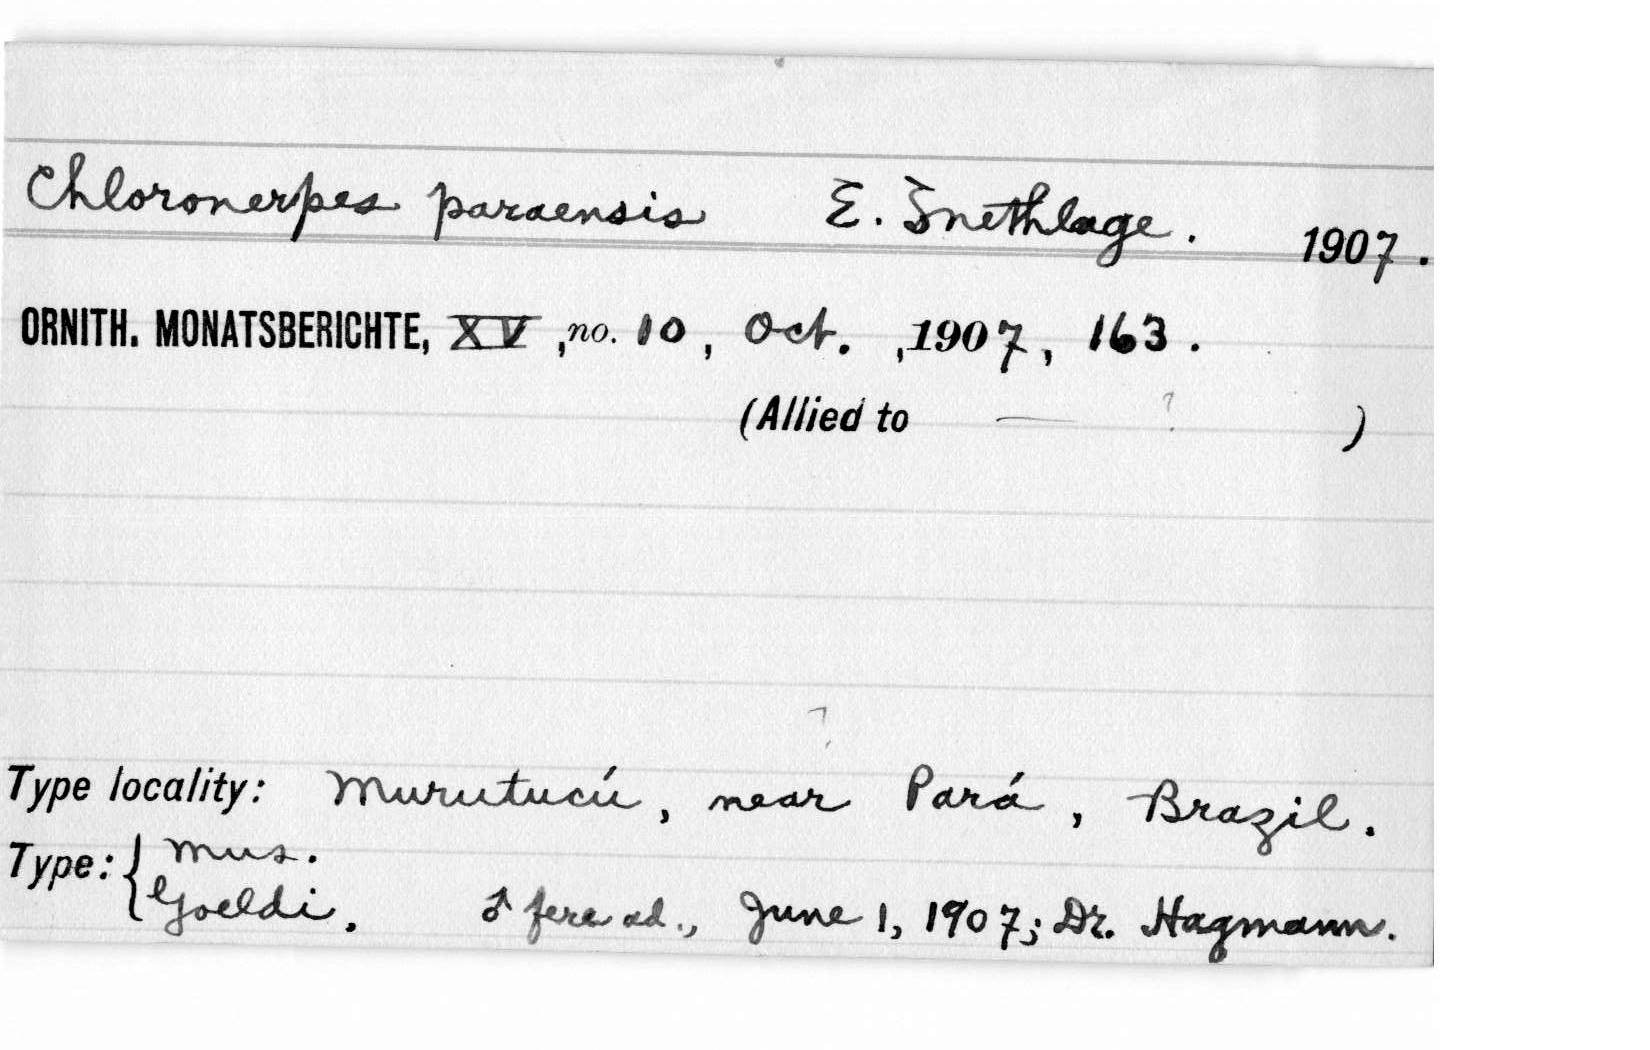 Chloronerpes paraensis E. Snethlage. 1907.
ORNITH. MONATSBERICHTE, XV, no. 10, Oct., 1907, 163.
(Allied to — ? )
?
Type locality: Murutucú, near Pará, Brazil.
Type: { Mus.
Goeldi. ♂ fere ad., June 1, 1907; Dr. Hagmann.